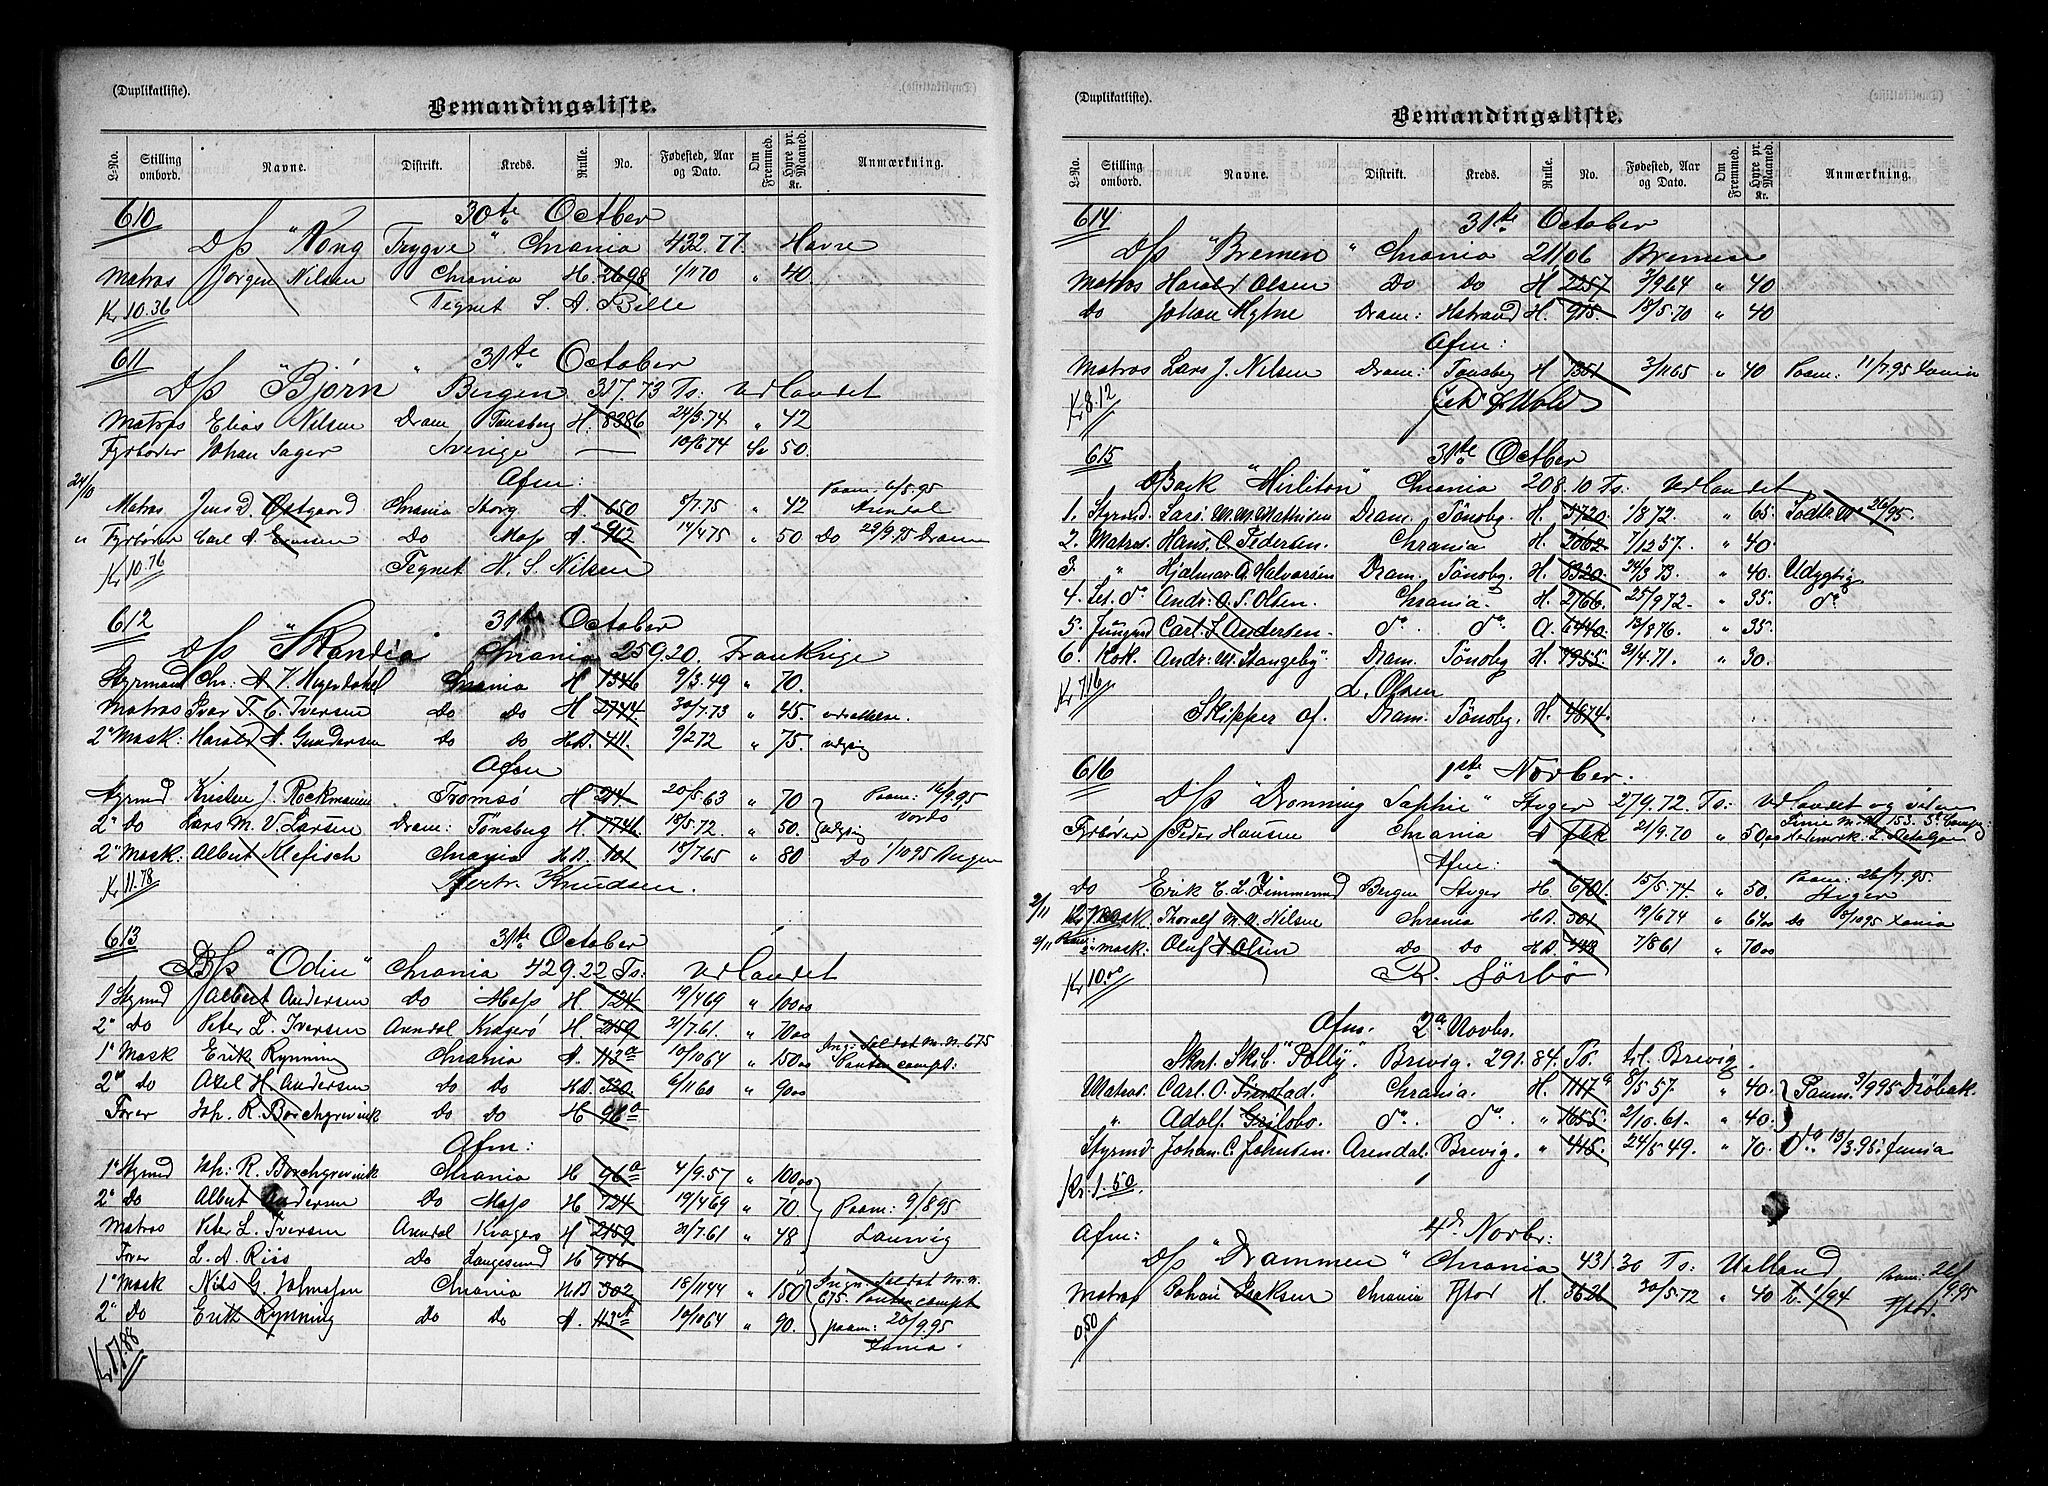 (Duplikatliste).
Bemandingsliste.
L-No. Stilling ombord. Navne. Distrikt. Kreds. Rulle. No. Fødested, Aar og Dato. Om Fremmed. Hyre pr. Maaned. Kr. Anmærkning.
610 30te October
D/s "Kong Trygve" Chrania 432.77. Havre
Matros Jørgen Nilsen Chrania H. 2698 1/11 70 " 40.
Kr 10.36 Tegnet S. A. Bille
611 31te October
D/s "Bjørn" Bergen 317.73 Ts: Udlandet
Matros Elias Nilsen Dram Tønsberg H. 8386 24/3.74 " 42
Fyrbøder Johan Sager Sverige — 10/6 74 Sv 50.
24/10 Afm:
Matros Jens D. Østgaard Chrania A. 650 8/7.75 " 42 Paam. 6/5.95 Arendal
" Fyrbøder Carl A. Do Moss A. 962 14/4 75 " 50 Do 29/9.95 Dram
Kr 10.76 Tegnet N. S. Nilsen
612 31te October
D/s "Skandia" Chrania 259.20. Frankrige
Styrmand Chr: A. Chrania H 1346 9/3.49 " 70.
Matros Ivar T. C. Iversen Do Do H 2744. 30/7.73 " 45.
2" Mask: Harald A. Gundersen Do Do H.D. 411. 9/2 72 " 75. udgsig
Afm
Styrmd Kristen J. Rockmann Tromsø H 20/5 63 " 70 Paam: 12/9.95 Vardø
2" Do Lars M. V. Larsen Dram: Tønsberg H. 7746 18/5.72. " 50. udgsig
2" Mask: Albert Klefisch Chrania H.D. 101 18/7 65 " 80 Do 1/10 95
Kr 11.78 Knudsen.
613 31te October
D/s "Odin" Chrania 429.22 Ts: Udlandet
1 Styrmd Albert Andersen Do Moss H 724 19/4 69 " 100 00
2" Do Peter L. Iversen Arendal Kragerø H 2159 21/7.61. " 70 00
1" Mask Erik Rynning Chrania A. 113a 10/10 64 " 150 00 Ing: Soldat M. N. 675 Ponton compt:
2" Do Axel H. Andersen Do Do H.D. 520. 6/11 60 " 90 00
Fører Joh. R. Borchgrevink Do Do H 96a
Afm:
1" Styrmd Joh: R. Borchgrevink Chrania H 96a 4/9.57 " 100 00
2" Do Albert Andersen Do Moss H 724 19/4 69 " 70 Paam: 9/8 95
Matros Peter L. Iversen Arendal Kragerø H 2159 21/7.61 " 48 Laurvig
Fører L. A. Riis Do Langesund H 946
1" Mask Nils G. Chrania H.D 302 18/11 44 " 150 Ingn. Soldat M. N. 675. Ponton compt
2" Do Erik Rynning Do Do A. 113a 10/10 64 " 90. paam: 20/9.95 Xania.
Kr 17.88
(Duplikatliste).
Bemandingsliste.
L-No. Stilling ombord. Navne. Distrikt. Kreds. Rulle. No. Fødested, Aar og Dato. Om Fremmed. Hyre pr. Maaned. Kr. Anmærkning.
614 31te October
D/s "Bremen" Chrania 211.06 Bremen
Matros Harald Olsen Do Do H 2257 3/9 64 " 40
Do Johan Myhre Dram: Hstrand H. 915. 18/5.70 " 40
Afm:
Matros Lars J. Nilsen Dram: Tønsberg H 7351 3/11 65 " 40 Paam: 11/7.95 Xania
Kr 8.12
615 31te October
D/Bark "Mirliton" Chrania 208.10 Ts. Udlandet
1. Styrmd. Lars M. M. Mathisen Dram. Tönsbg. H. 5720. 1/8 72. " 65.
2. Matros. Hans C. Pedersen. Chrania H. 2062 7/12 57. " 40.
3. " Hjalmar A. Halvorsen Dram. Tönsbg. H. 8320. 24/3 73. " 40. Udygtig
4. Let. do Andr. O. S. Olsen. Chrania. H. 2766. 25/9 72. " 35. do
5. Jungmd Carl. I. Andersen. do do A. 6440. 12/8 76. " 35.
6. Kok. Andr. M. Stangeby. Dram. Tönsbg H. 7955. 21/4.71. " 30.
Kr 7.16 L. Olsen
Skipper af. Dram. Tönsbg. H. 4874.
616 1ste Novber.
D/s "Dronning Sophie" Stvger 279.72. Ts: Udlandet og
Fyrbøder Peder Hansen Chrania A 21/9.70 " 50,00
Afm:
Do Erik C. L. Zimmermd Bergen Stvger H. 6701 15/5.74 " 50. Paam: 26/7.95. Stvger
2/11 Mask: Thoralf M. N. Nilsen Chrania H.D. 501 19/6 74 " 64 00 Do 8/10 95 Xania
2/11 2" Mask: Oluf A. Olsen Do Do H.D. 448 7/8 61 " 70 00
Kr 10.00 R. Sörbö
Afm. 2a Novbr.
Skon. Skib. "Polly". Brevig. 291.84. Ts. til Brevig.
Matros. Carl. O. Chrania. H. 1167a 8/5 57. " 40. Paam. 3/9 95 Drøbak.
" Adolf. do do " 1655. 2/10.61. " 40.
Styrmd. Johan. C. Johnsen. Arendal. Brevig. " 445. 24/5 49. " 70. do 13/3.96.
Kr. 1.50.
Afm: 4de Novbr:
D/s "Drammen" Chrania 431.30 Ts: Udland
Matros Johan Isaksen Chrania Fstad H. 3626 30/5.72 " 40 Paam: 9.95 Fstd.
0,50